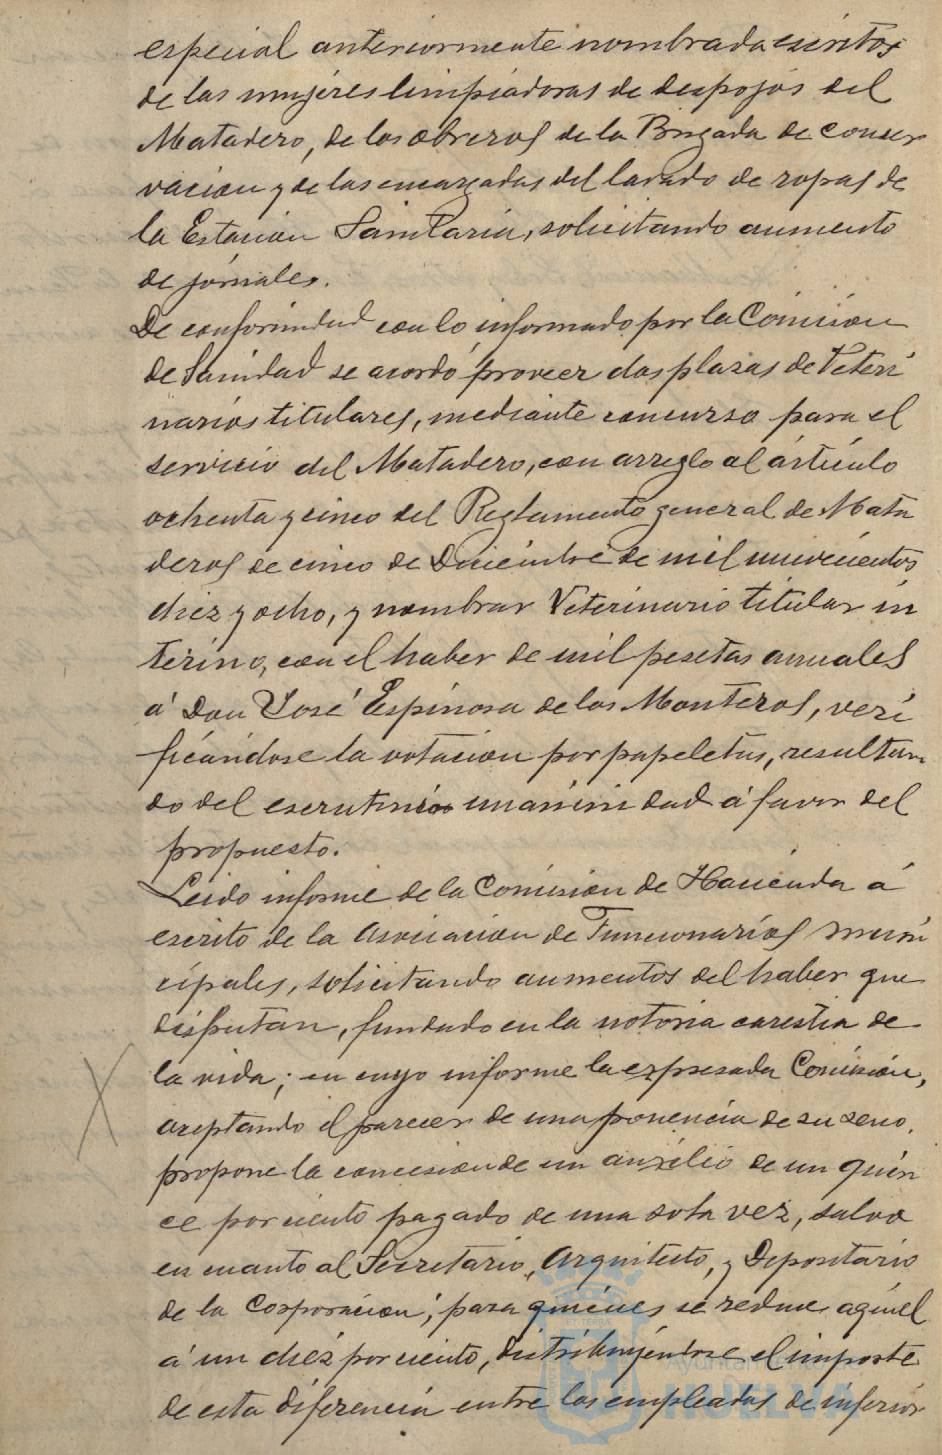 especial anteriormente nombrada escritos
de las mujeres limpiadoras de despojos del
Matadero, de los obreros de la Brigada de conser
vacion y de las encargadas del lavado de ropas de
la Estacion Sanitaria, solicitando aumento
de jornales.
De conformidad con lo informado por la Comision
de Sanidad se acordó proveer dos plazas de Veteri
narios titulares, mediante concurso para el
servicio del Matadero, con arreglo al artículo
ochenta y cinco del Reglamento general de Mata
deros de cinco de Diciembre de mil novecientos
diez y ocho, y nombrar Veterinario titular in
terino, con el haber de mil pesetas anuales
á Don José Espinosa de los Monteros, veri
ficándose la votacion por papeletas, resultan
do del escrutinio unanimidad á favor del
propuesto.
Leido informe de la Comision de Hacienda á
escrito de la Asociacion de Funcionarios muni
cipales, solicitando aumentos del haber que
disfrutan, fundado en la notoria carestia de
la vida; en cuyo informe la expresada Comisión,
aceptando el parecer de una ponencia de su seno,
propone la concesion de un auxilio de un quin
ce por ciento pagado de una sola vez, salvo
en cuanto al Secretario, Arquitecto, y Depositario
de la Corporacion; para quienes se reduce aquel
á un diez por ciento, distribuyéndose el importe
de esta diferencia entre los empleados de inferior
Ayuntamiento de
HUELVA